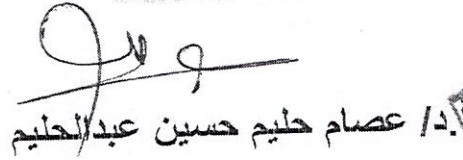 د/ عصام حليم حسين عبدالحليم